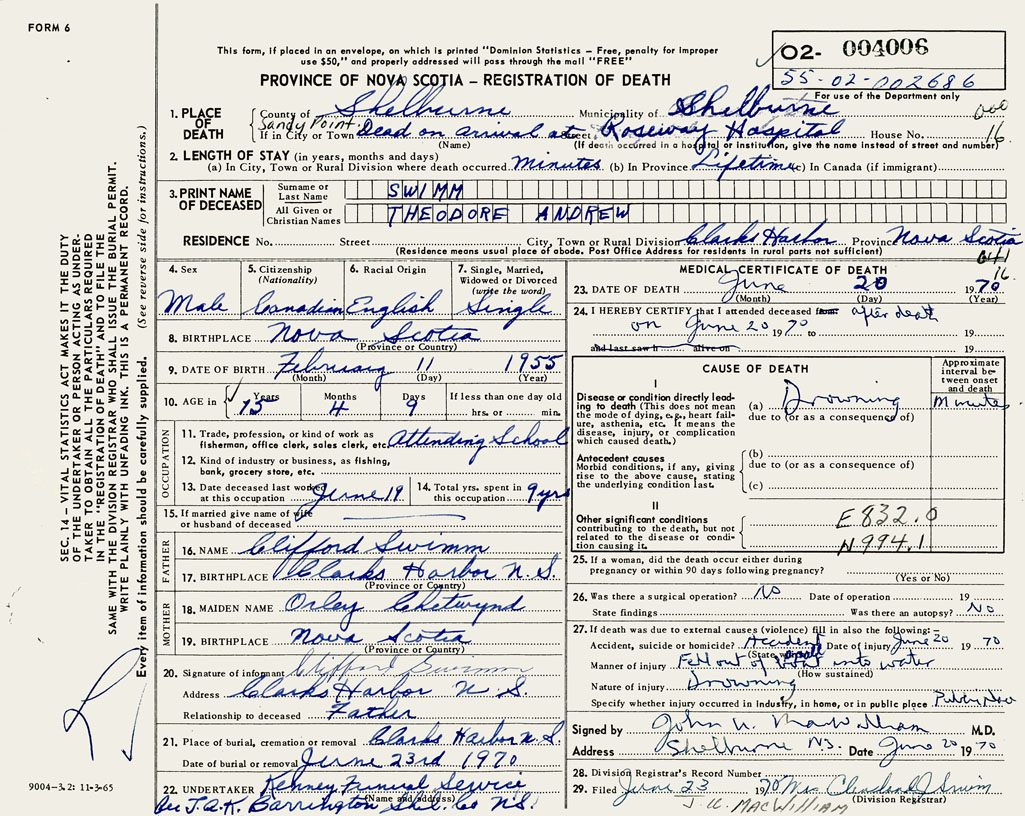 FORM 6
This form, if placed in an envelope, on which is printed "Dominion Statistics – Free, penalty for improper
use $50," and properly addressed will pass through the mail "FREE"
PROVINCE OF NOVA SCOTIA – REGISTRATION OF DEATH
O2- 004006
55-02-002686
For use of the Department only
1. PLACE OF DEATH
County of Shelburne Municipality of Shelburne
Sandy Point.
If in City or Town Dead on arrival at Street Roseway Hospital House No.
16
(Name) (If death occurred in a hospital or institution, give the name instead of street and number)
2. LENGTH OF STAY (in years, months and days)
(a) In City, Town or Rural Division where death occurred minutes (b) In Province Lifetime (c) In Canada (if immigrant)
3. PRINT NAME OF DECEASED
Surname or Last Name SWIMM
All Given or Christian Names THEODORE ANDREW
RESIDENCE No. Street City, Town or Rural Division Clarks Harbor Province Nova Scotia
(Residence means usual place of abode. Post Office Address for residents in rural parts not sufficient)
041
16
4. Sex Male
5. Citizenship (Nationality) Canadian
6. Racial Origin English
7. Single, Married, Widowed or Divorced (write the word) Single
8. BIRTHPLACE Nova Scotia
(Province or Country)
9. DATE OF BIRTH February 11 1955
(Month) (Day) (Year)
10. AGE in Years 15 Months 4 Days 9 If less than one day old hrs. or min.
OCCUPATION
11. Trade, profession, or kind of work as fisherman, office clerk, sales clerk, etc. Attending School
12. Kind of industry or business, as fishing, bank, grocery store, etc.
13. Date deceased last worked at this occupation June 19
14. Total yrs. spent in this occupation 9 yrs
15. If married give name of wife or husband of deceased
FATHER
16. NAME Clifford Swimm
17. BIRTHPLACE Clarks Harbor N.S.
(Province or Country)
MOTHER
18. MAIDEN NAME Orley Chetwynd
19. BIRTHPLACE Nova Scotia
(Province or Country)
20. Signature of informant Clifford Swimm
Address Clarks Harbor N S.
Relationship to deceased Father
21. Place of burial, cremation or removal Clarks Harbor N.S.
Date of burial or removal June 23rd 1970
22. UNDERTAKER Kenney Funeral Service
(Name and address)
J.A.K. Barrington Shel. Co N.S.
MEDICAL CERTIFICATE OF DEATH
23. DATE OF DEATH June 20 1970
(Month) (Day) (Year)
24. I HEREBY CERTIFY that I attended deceased from after death
on June 20 1970 to 19
and last saw h alive on 19
CAUSE OF DEATH
Approximate interval between onset and death
I
Disease or condition directly leading to death (This does not mean the mode of dying, e.g., heart failure, asthenia, etc. It means the disease, injury, or complication which caused death.)
(a) Drowning minutes
due to (or as a consequence of)
Antecedent causes
Morbid conditions, if any, giving rise to the above cause, stating the underlying condition last.
(b)
due to (or as a consequence of)
(c)
II
Other significant conditions contributing to the death, but not related to the disease or condition causing it.
E832.0
N994.1
25. If a woman, did the death occur either during pregnancy or within 90 days following pregnancy?
(Yes or No)
26. Was there a surgical operation? No Date of operation 19
State findings Was there an autopsy? No
27. If death was due to external causes (violence) fill in also the following:
Accident, suicide or homicide? Accident Date of injury June 20 1970
(State which)
Manner of injury Fell out of boat into water
(How sustained)
Nature of injury Drowning
Specify whether injury occurred in industry, in home, or in public place
Signed by John U. MacWilliam M.D.
Address Shelburne N.S. Date June 20 1970
28. Division Registrar's Record Number
29. Filed June 23 1970 Mrs Cleveland J Swim
(Division Registrar)
J. U. MACWILLIAM
SEC. 14 – VITAL STATISTICS ACT MAKES IT THE DUTY
OF THE UNDERTAKER OR PERSON ACTING AS UNDER-
TAKER TO OBTAIN ALL THE PARTICULARS REQUIRED
IN THE "REGISTRATION OF DEATH" AND TO FILE THE
SAME WITH THE DIVISION REGISTRAR WHO SHALL ISSUE THE BURIAL PERMIT.
WRITE PLAINLY WITH UNFADING INK. THIS IS A PERMANENT RECORD.
Every item of information should be carefully supplied. (See reverse side for instructions.)
9004-3.2: 11-3-65